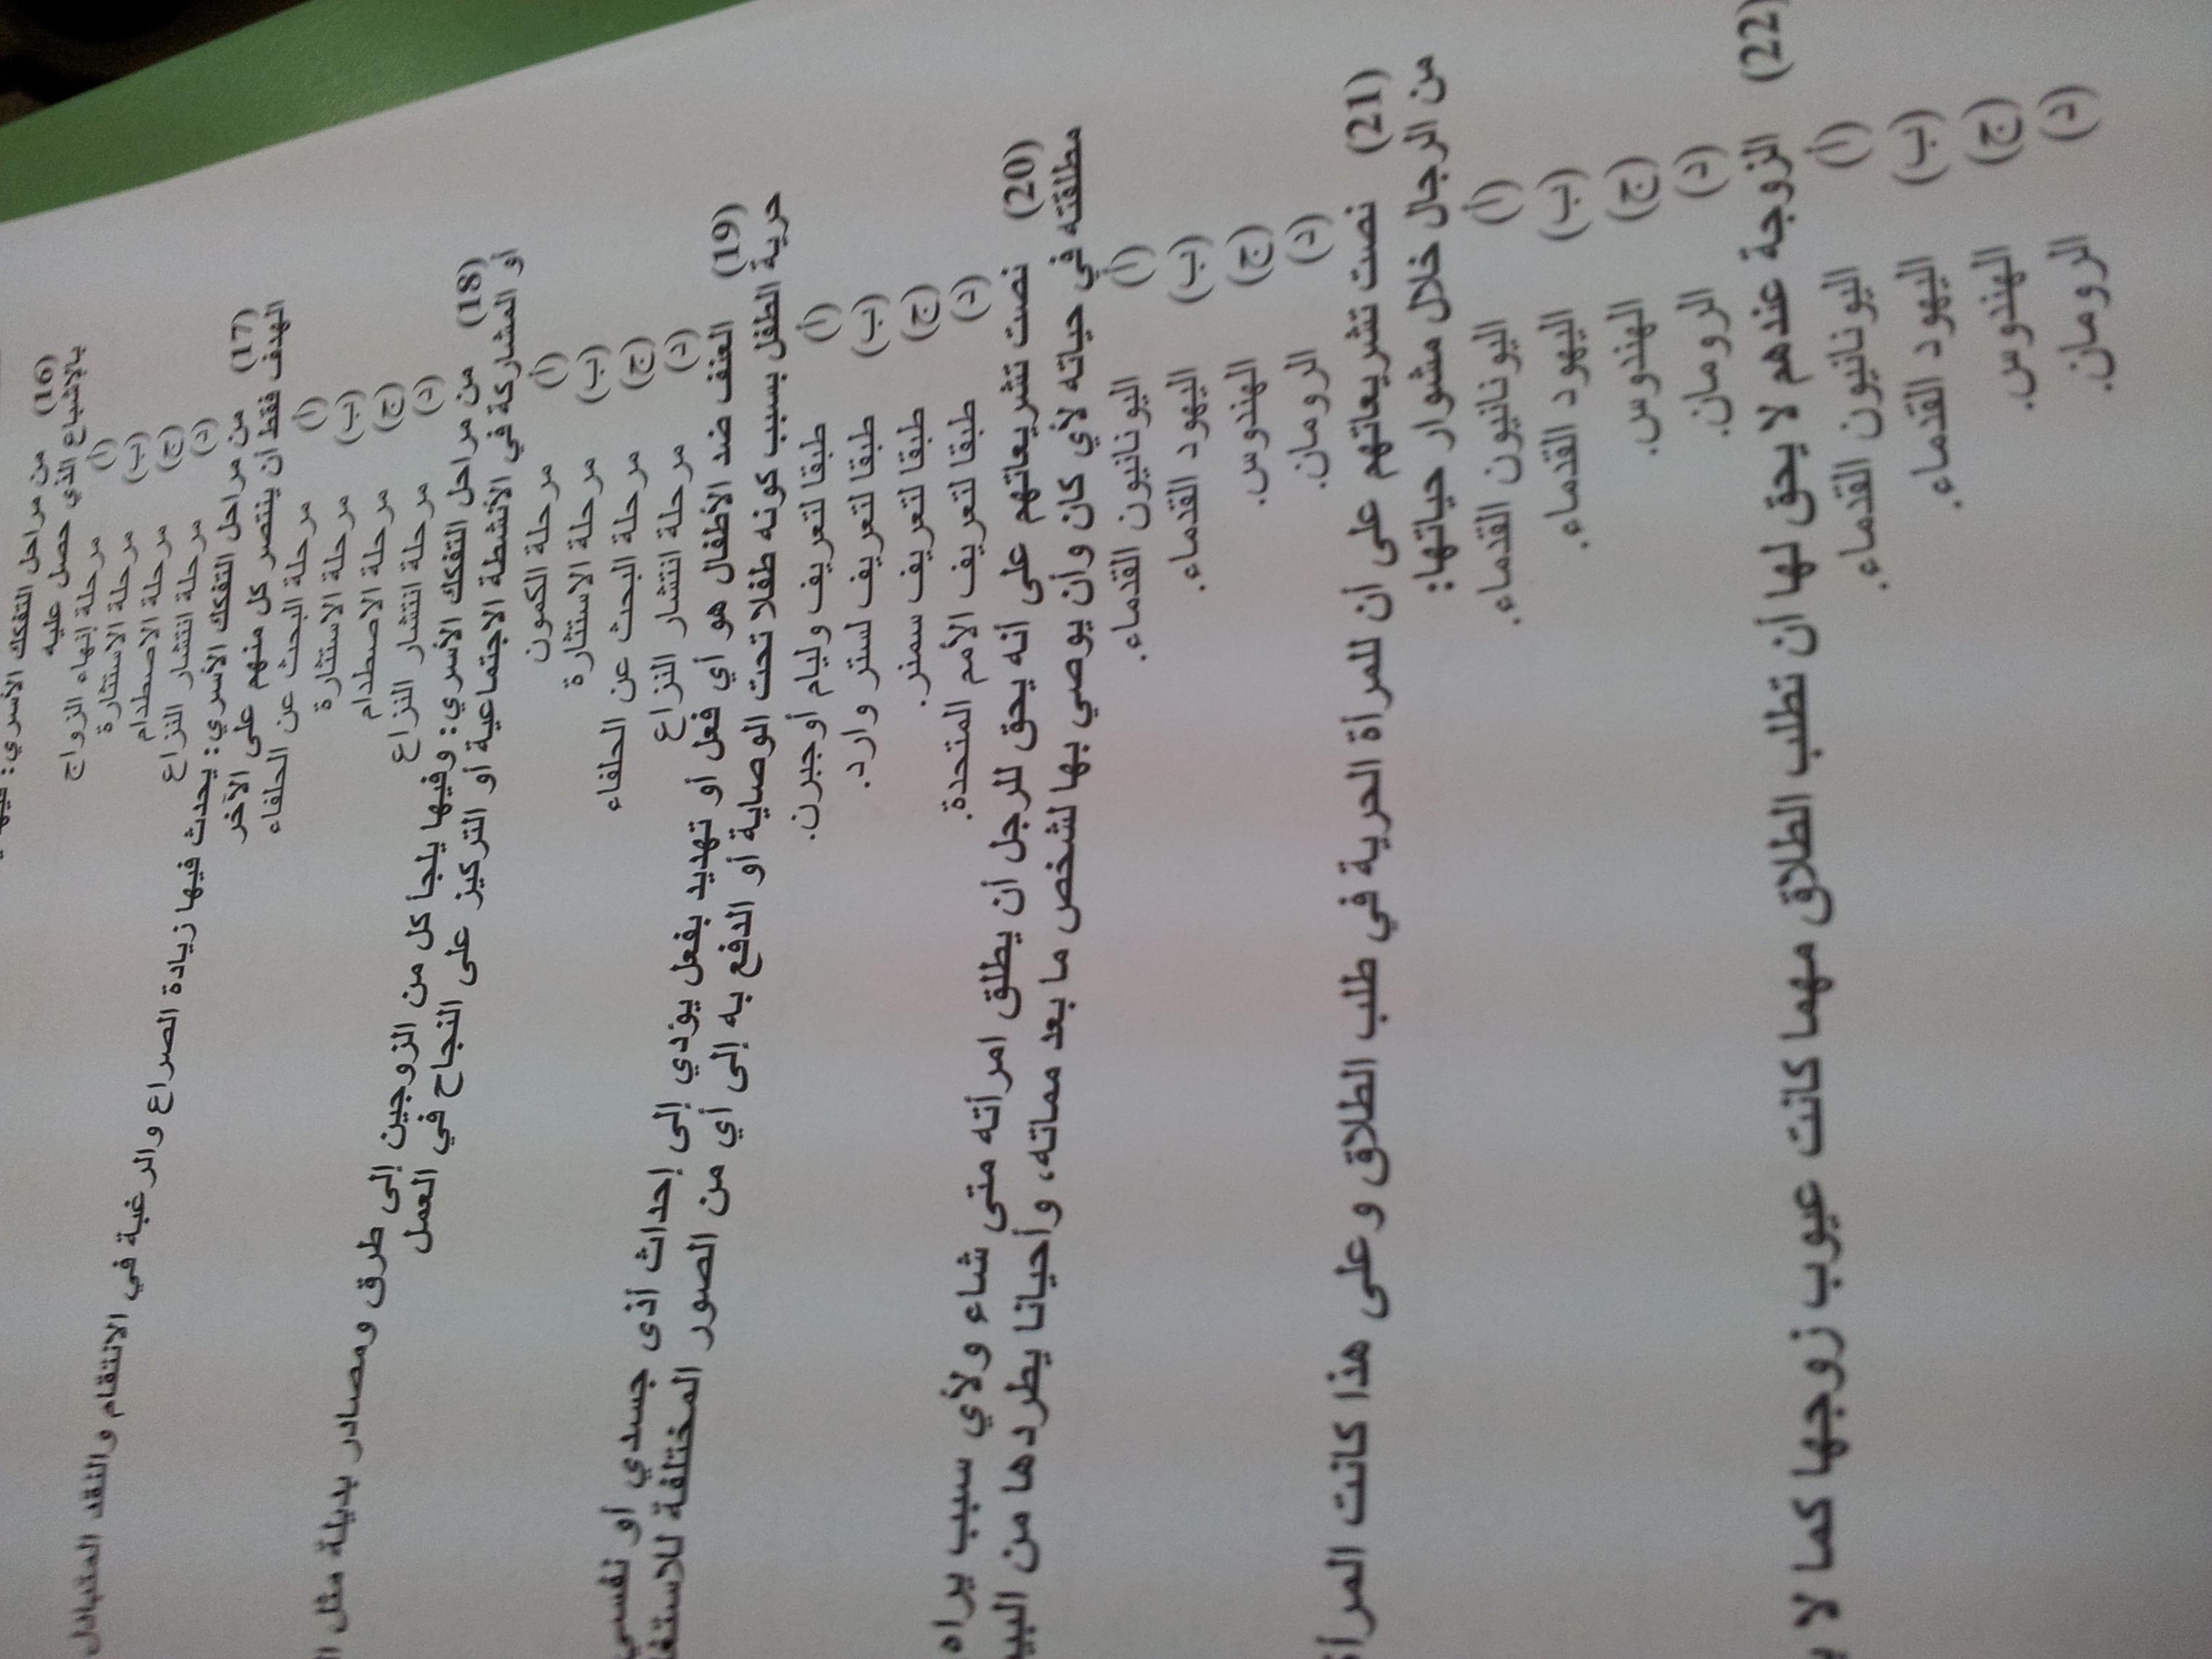 من مراحل التفكك الأسري:
(16) بالإشباع الذي حصل عليه
(أ) مرحلة إنهاء الزواج
(ب) مرحلة الاستثارة
(ج) مرحلة الاصطدام
(د) مرحلة انتشار النزاع
(17) من مراحل التفكك الأسري: يحدث فيها زيادة الصراع والرغبة في الانتقام والنقد المتبادل
الهدف فقط أن ينتصر كل منهم على الآخر
(أ) مرحلة البحث عن الحلفاء
(ب) مرحلة الاستثارة
(ج) مرحلة الاصطدام
(د) مرحلة انتشار النزاع
(18) من مراحل التفكك الأسري: وفيها يلجأ كل من الزوجين إلى طرق ومصادر بديلة مثل
أو المشاركة في الأنشطة الاجتماعية أو التركيز على النجاح في العمل
(أ) مرحلة الكمون
(ب) مرحلة الاستثارة
(ج) مرحلة البحث عن الحلفاء
(د) مرحلة انتشار النزاع
(19) العنف ضد الأطفال هو أي فعل أو تهديد بفعل يؤدي إلى إحداث أذى جسدي أو نفسي
حرية الطفل بسبب كونه طفلا تحت الوصاية أو الدفع به إلى أي من الصور المختلفة
(أ) طبقا لتعريف وليام أوجبرن.
(ب) طبقا لتعريف لستر وارد.
(ج) طبقا لتعريف سمنر.
(د) طبقا لتعريف الأمم المتحدة.
(20) نصت تشريعاتهم على أنه يحق للرجل أن يطلق امرأته متى شاء ولأي سبب يراه
مطلقته في حياته لأي كان وأن يوصي بها لشخص ما بعد مماته، وأحيانا يطردها من
(أ) اليونانيون القدماء.
(ب) اليهود القدماء.
(ج) الهندوس.
(د) الرومان.
(21) نصت تشريعاتهم على أن للمرأة الحرية في طلب الطلاق وعلى هذا كانت
من الرجال خلال مشوار حياتها:
(أ) اليونانيون القدماء.
(ب) اليهود القدماء.
(ج) الهندوس.
(د) الرومان.
(22) الزوجة عندهم لا يحق لها أن تطلب الطلاق مهما كانت عيوب زوجها كما لا
(أ) اليونانيون القدماء.
(ب) اليهود القدماء.
(ج) الهندوس.
(د) الرومان.